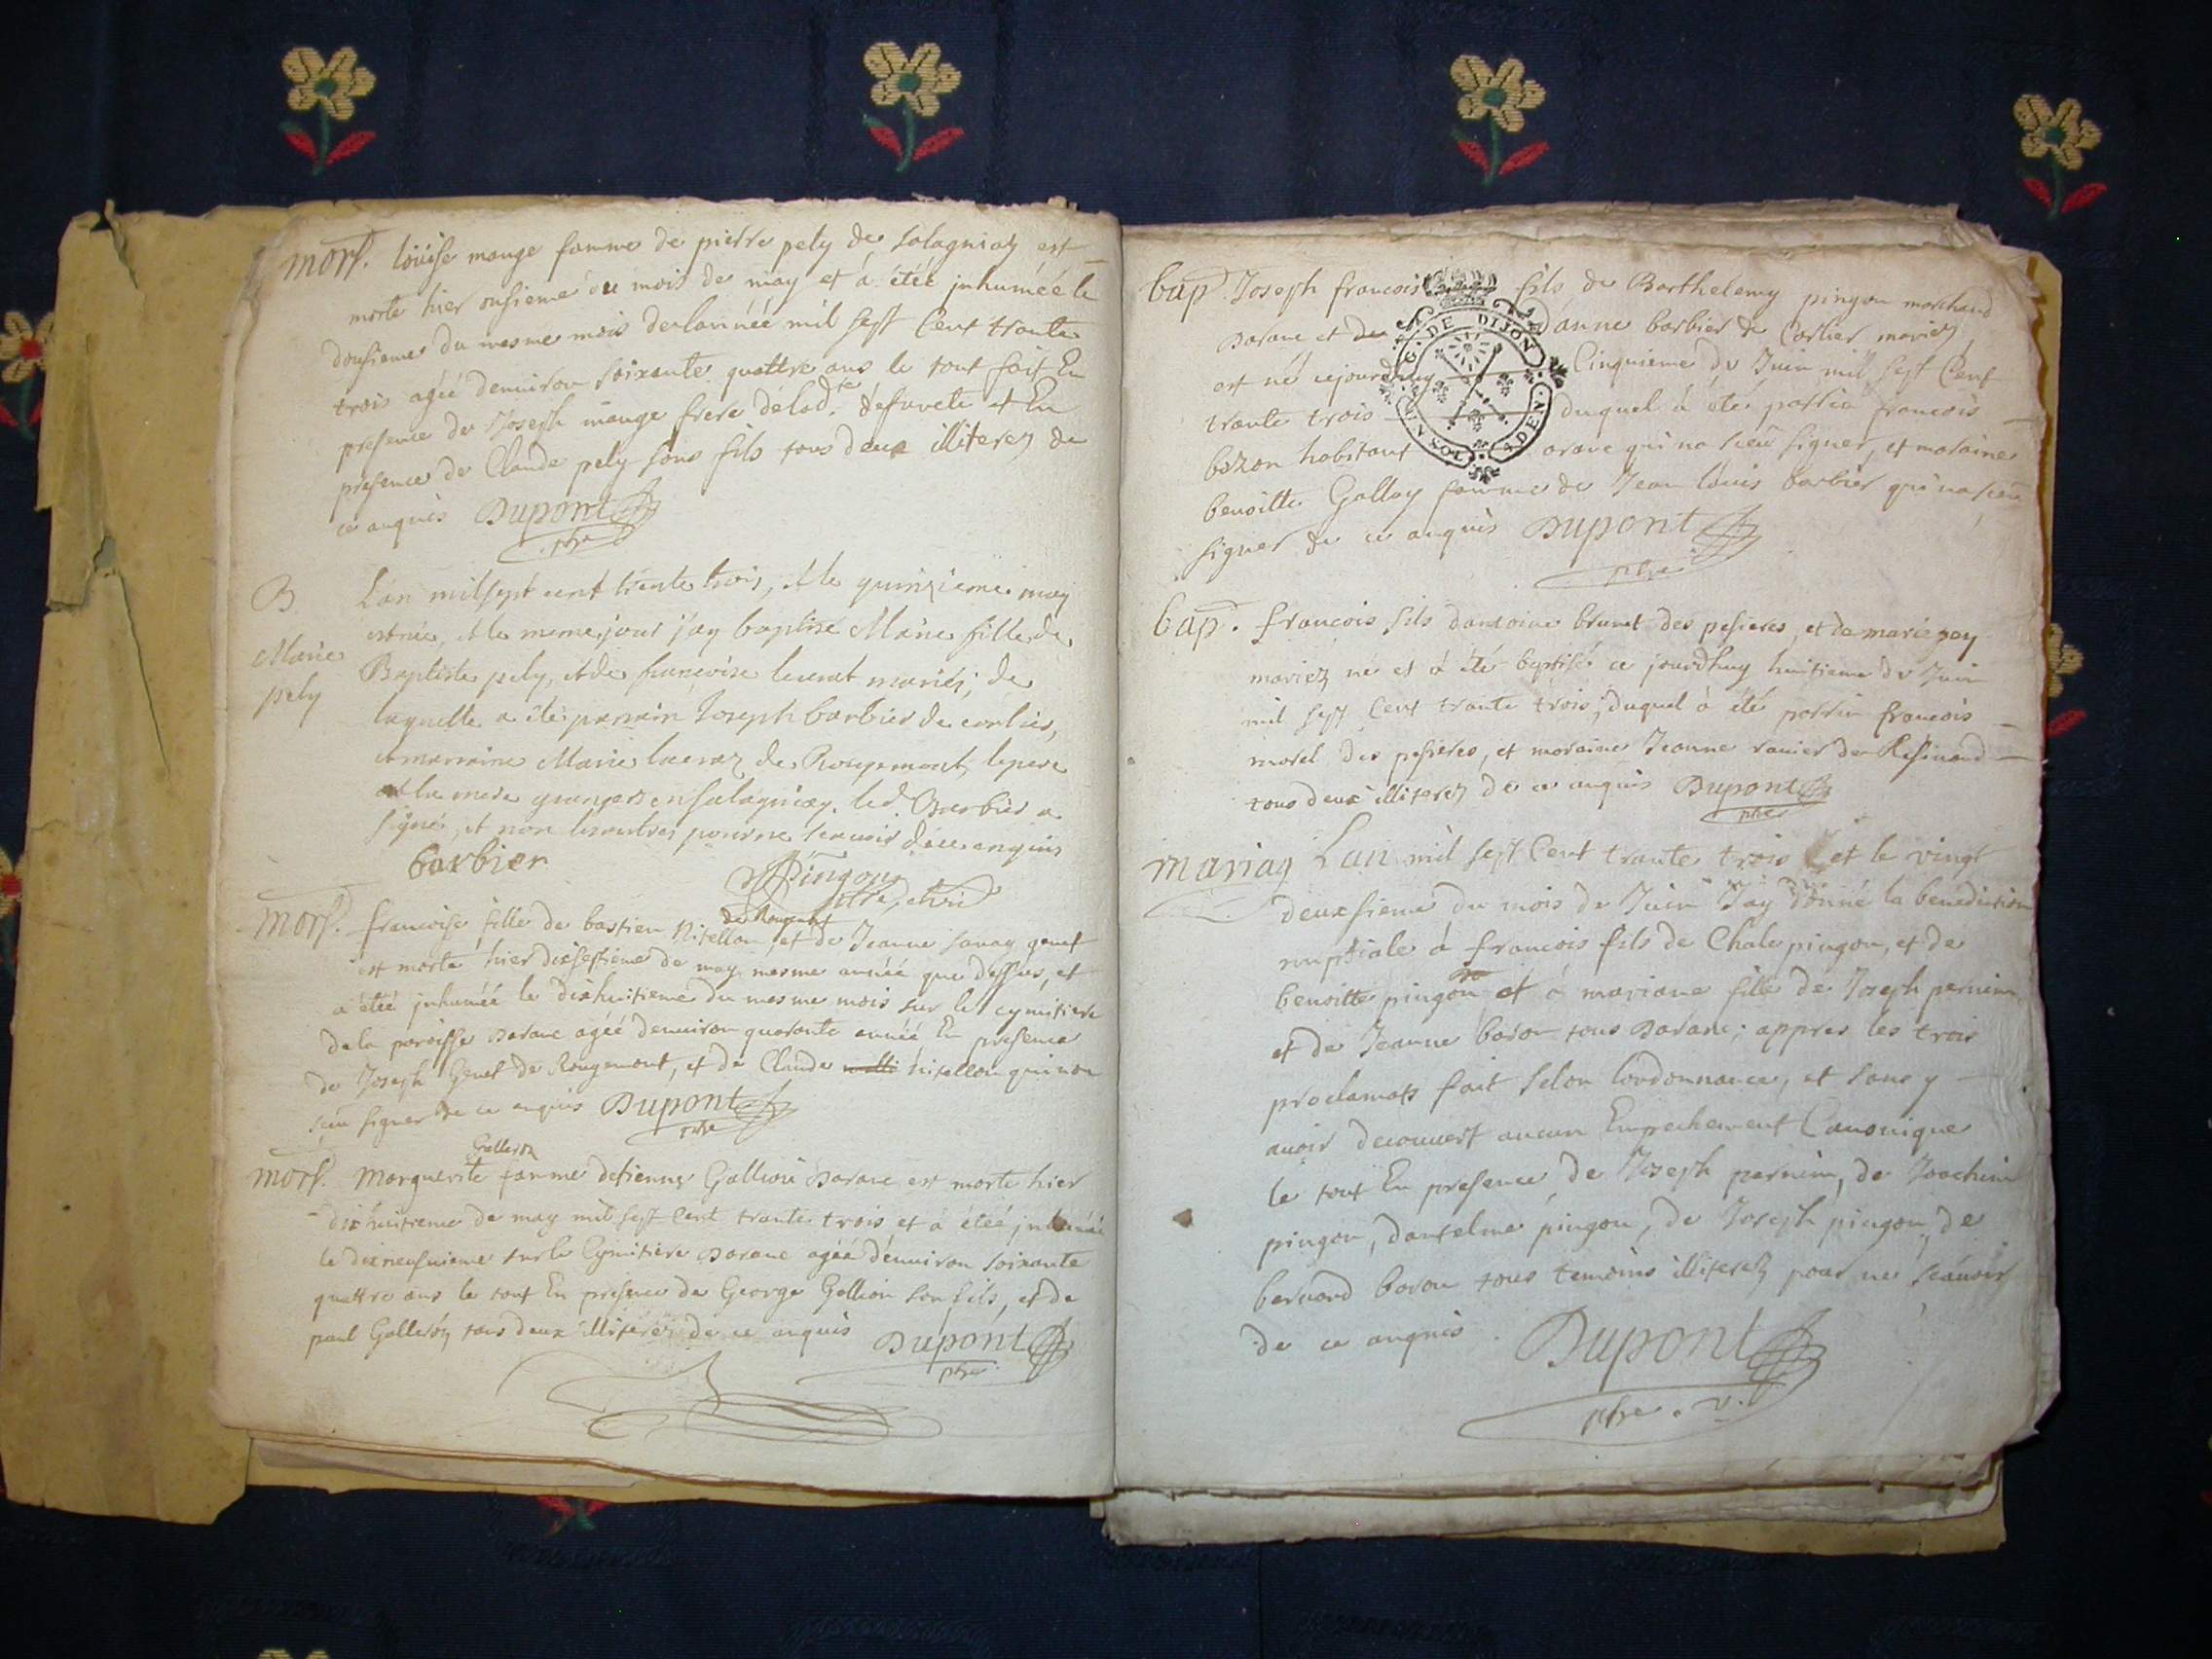 mort. loüise mouge famme de pierre pely de salagniaz est
morte hier onsieme du mois de may et à étéé jnhuméé le
dousieme du mesme mois de lannéé mil sept Cent trante
trois agéé denuiron soixante quattre ans le tout fait En
presence de Joseph mouge frere de lad.te defuncte et En
presence de Claude pely sons fils tous deux illiterez de
ce anquis Dupont
ptre
B Lan mil sept cent trente trois, & le quinzieme may
est née, & le meme jour j'ay baptisé Marie fille de
Marie Baptiste pely, & de francoise lucrat mariés; de
pely laquelle a été parrain Joseph barbier de corlier,
& marraine Marie lucraz de Rougemont, le pere
et la mere grangers en salagniaz. led. Barbier a
signé, et non les autres pour ne scauoir de ce enquis
barbier Pingon
mort. francoise fille de bastien Nitellon de Rougemont, et de Jeanne sauay genet
est morte hier dixseptieme de may mesme annéé que dessus, et
a étéé jnhuméé le dixhuitieme du mesme mois sur le cymitiere
de la paroisse Darane agéé denuiron quarante annéé En presence
de Joseph Genet de Rougemont, et de Claude nitellon qui non
sceu signer de ce anquis Dupont
ptre
Galleron
mort. Marguerite famme detienne Gallion Darane est morte hier
dixhuitieme de may mil sept Cent trante trois et à étéé jnhuméé
le dixneufuieme sur le Cymitiere Darane agéé denuiron soixante
quattre ans le tout En presence de George Gallion son fils, et de
paul Galleron tous deux illiterez de ce anquis Dupont
ptre
bap. Joseph francois fils de Barthelemy pingon marchand
Darane et de Danne barbier de Corlier mariez
est né cejourdhuy Cinquieme de Juin mil sept Cent
trante trois duquel à été parrin francois
bozon habitant arane qui na sceu signer, et maraine
benoitte Galley famme de Jean loüis barbier qui na sceu
signer de ce anquis Dupont
ptre
G. DE DIJON
bap. francois fils dantoine brunet des pesieres, et de marie
mariez né et à été baptisé ce jourdhuy huitieme de Juin
mil sept Cent trante trois, duquel à été parrin francois
morel des pesieres, et maraine Jeanne rauier de Resinand
tous deux illiterez de ce anquis Dupont
ptre
mariag Lan mil sept Cent trante trois et le vingt
deuxsieme du mois de Juin Jay donné la benediction
nuptiale à francois fils de Chale pingon, et de
benoitte pingon et à mariane fille de Joseph pernim
et de Jeanne boron tous Darane; appres les trois
proclamats fait selon lordonnance, et sans y
auoir decouuert aucun Empechement Canonique
le tout En presence de Joseph pernim, de Joachim
pingon, dantelme pingon, de Joseph pingon, de
bernard boron tous temoins illiterez pour ne scauoir
de ce anquis. Dupont
ptre. v.